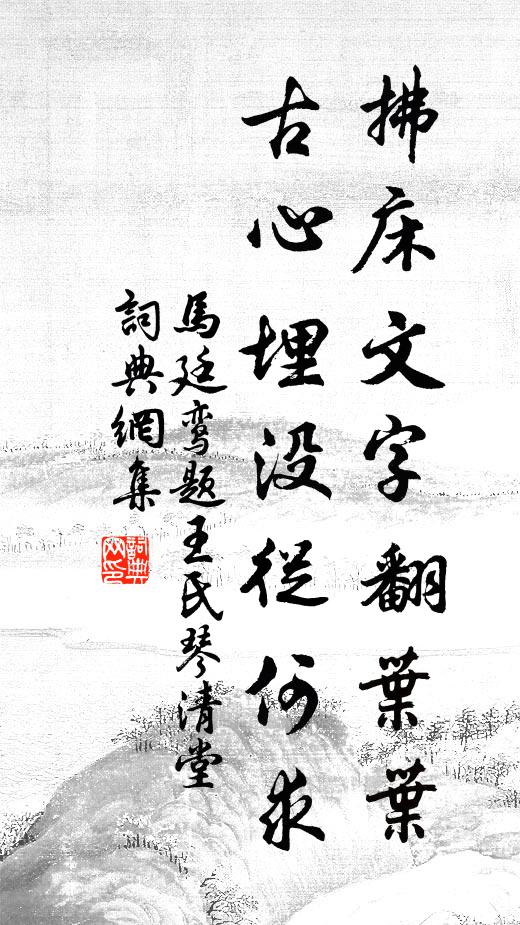 拂床文字翻葉葉
古心埋没從何求
馬廷鸾題王氏琴清堂
詞典網集
詞典网印